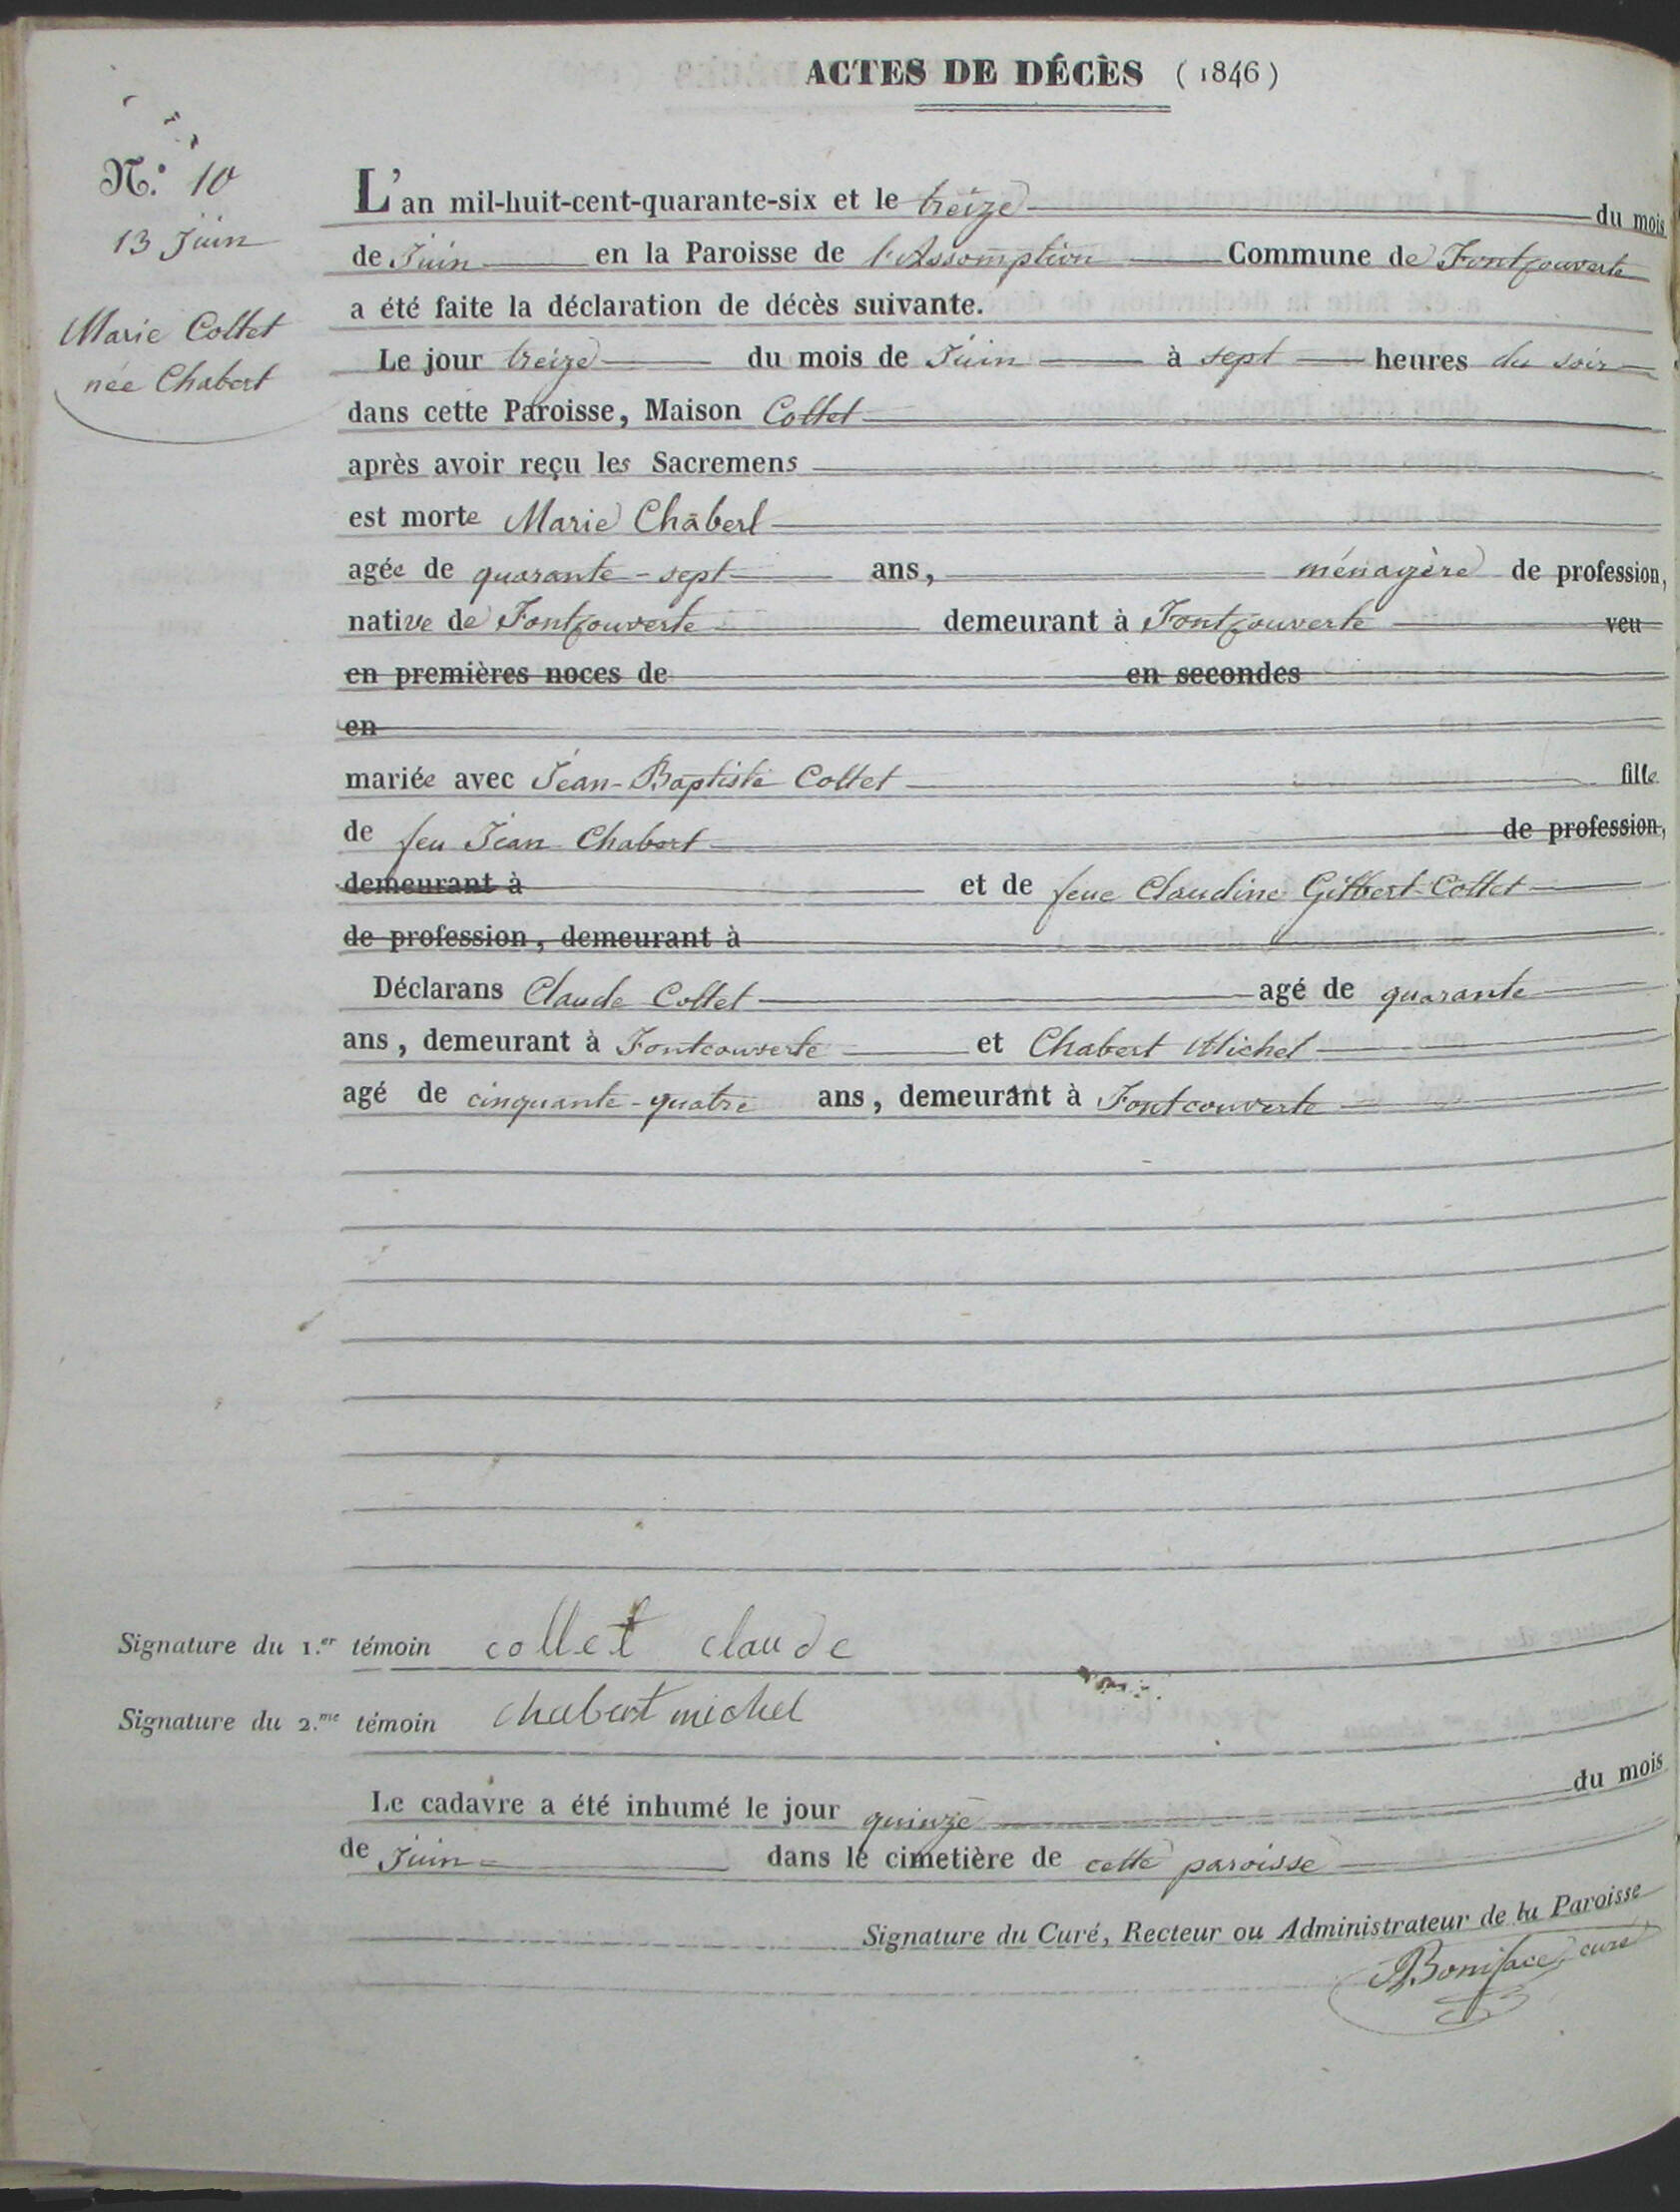 ACTES DE DÉCÈS (1846)
N.° 10
13 Juin
Marie Collet
née Chabert
L'an mil-huit-cent-quarante-six et le treize du mois
de Juin en la Paroisse de l'Assomption Commune de Fontcouverte
a été faite la déclaration de décès suivante.
Le jour treize du mois de Juin à sept heures du soir
dans cette Paroisse, Maison Collet
après avoir reçu les Sacremens
est morte Marie Chabert
agée de quarante-sept ans, ménagère de profession,
native de Fontcouverte demeurant à Fontcouverte veu
en premières noces de en secondes
en
mariée avec Jean-Baptiste Collet fille
de feu Jean Chabert de profession,
demeurant à et de feue Claudine Gilbert-Collet
de profession, demeurant à
Déclarans Claude Collet agé de quarante
ans, demeurant à Fontcouverte et Chabert Michel
agé de cinquante-quatre ans, demeurant à Fontcouverte
Signature du 1.er témoin collet claude
Signature du 2.me témoin chabert michel
Le cadavre a été inhumé le jour quinze du mois
de Juin dans le cimetière de cette paroisse
Signature du Curé, Recteur ou Administrateur de la Paroisse
Boniface curé